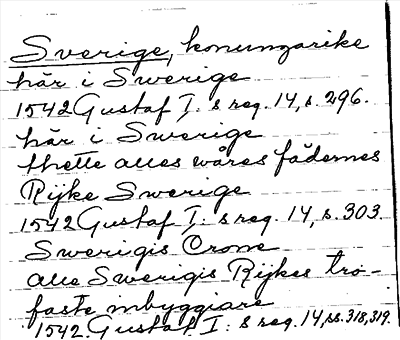 Sverige, konungarike
här i Swerige
1542 Gustaf I: s reg. 14, s. 296.
här i Swerige
thette alles wåres fädernes
Rijke Swerige
1542 Gustaf I: s reg. 14, s. 303.
Swerigis Crone
alle Swerigis Rijkes tro-
faste inbyggiare
1542. Gustaf I: s reg. 14, ss. 318, 319.